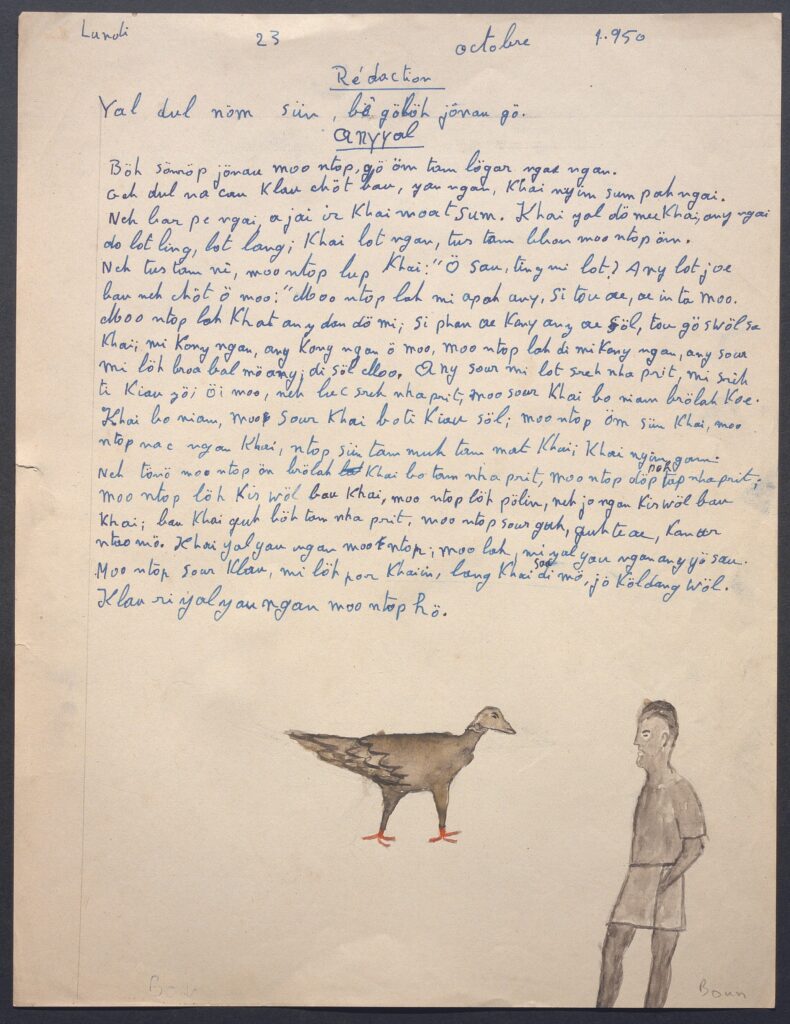 Lundi 23 octobre 1.950
Rédaction
Yal dul nöm siin, bè gölöh jönau gö.
anyyal
Böh sömöp jönau moo ntop, gö öm tam lögar ngan ngan.
Geh dul na cau Klau chöt bau, yau ngan, Khai nyim sum pah ngai.
Neh bar pe ngai, a jai ir Khai moat sum. Khai yal dö mee Khai, any ngai
do lot ling, lot lang; Khai lot ngan, tus tam bhan moo ntop öm.
Neh tus tam nè, moo ntop lup Khai: "Ö sau, ting mi lot? Any lot joe
bau neh chöt ö moo:" Moo ntop lah mi apah any, si tou ae, ae in ta moo.
Moo ntop lah Khat any dan dö mi; si phan ae Kony any ae söl, tou gö swöl sa
Khai; mi Kony ngan, any Kong ngan ö moo, moo ntop lah di mi Kony ngan, any sour
mi löh broa bal mö any; di söl Moo. Any sour mi lot sreh nha prit, mi sreh
ti Kiau jöi öi moo, neh luc sreh nha prit, moo sour Khai bo niam brölah Koe.
Khai bo niam, moo sour Khai boti Kiau söl; moo ntop öm siin Khai, moo
ntop vac ngan Khai, ntop siin tam muh tam mat Khai; Khai nyim gam.
Neh tönö moo ntop ön brölah Khai bo tam nha prit, moo ntop döp noh tap nha prit;
moo ntop löh Kis wöl bau Khai, moo ntop löh pölin, neh jo ngan Kis wöl bau
Khai; bau Khai guh böh tam nha prit, moo ntop sour guh, guh te ae, Kan ur
ntao mö. Khai yal yau ngan moo ntop; moo lah, mi yal yau ngan any yö sau.
Moo ntop sour Klau, mi löh por Khaiin, lang Khai sau di mö, jö Köldang wöl.
Klau ri yal yau ngan moo ntop hö.
Bour
Boun